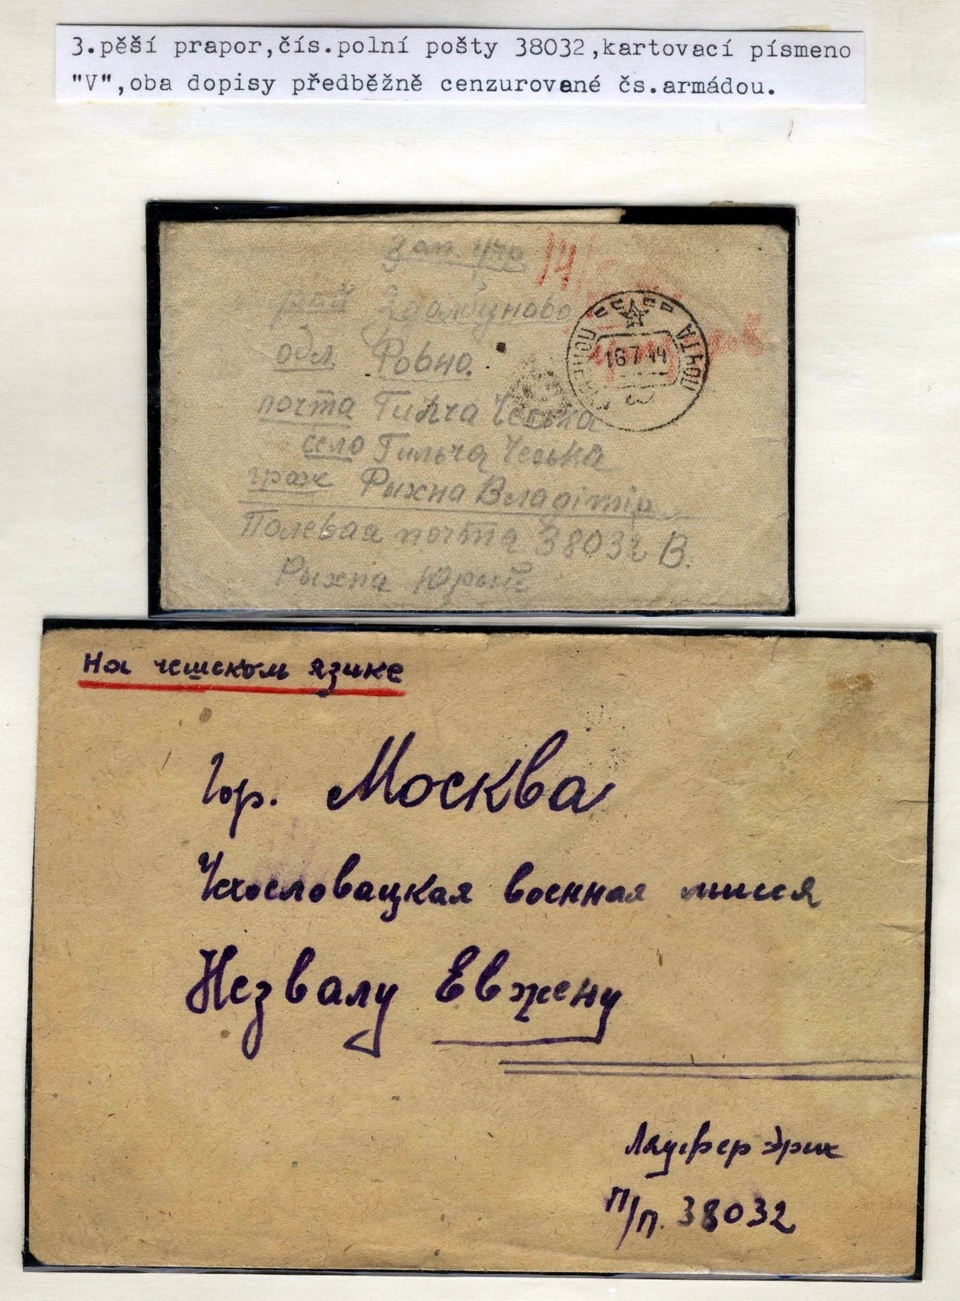 3.pěší prapor,čís.polní pošty 38032,kartovací písmeno
"V",oba dopisy předběžně cenzurované čs.armádou.
Зап. Укр
рай Здолбуново
обл. Ровно.
16 7 44
ПОЧТА
почта Гильча Чеська
село Гильча Чеська
граж Рыхна Владімір
Полевая почта 38032 В.
Рыхна Юрый
На чешском язике
Гор. Москва
Чехословацкая военная мисия
Незвалу Евжену
Лауфер Эрих
П/п. 38032